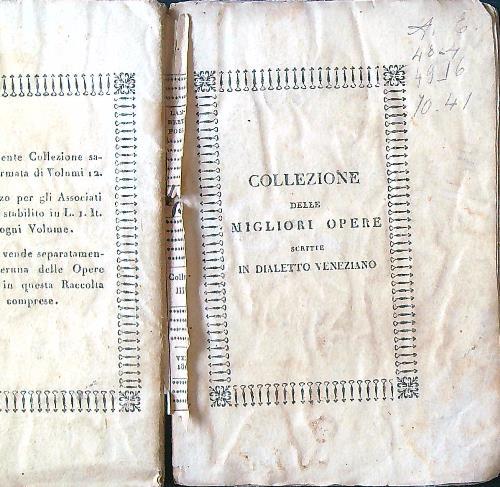 ente Collezione sa-
rmata di Volumi 12.
zo per gli Associati
stabilito in L. 1. It.
ogni Volume.
vende separatamen-
eruna delle Opere
in questa Raccolta
comprese.
LAM-
BERTI
POES
Colle
III
VE
18
COLLEZIONE
DELLE
MIGLIORI OPERE
SCRITTE
IN DIALETTO VENEZIANO
A. E.
4916
10-41